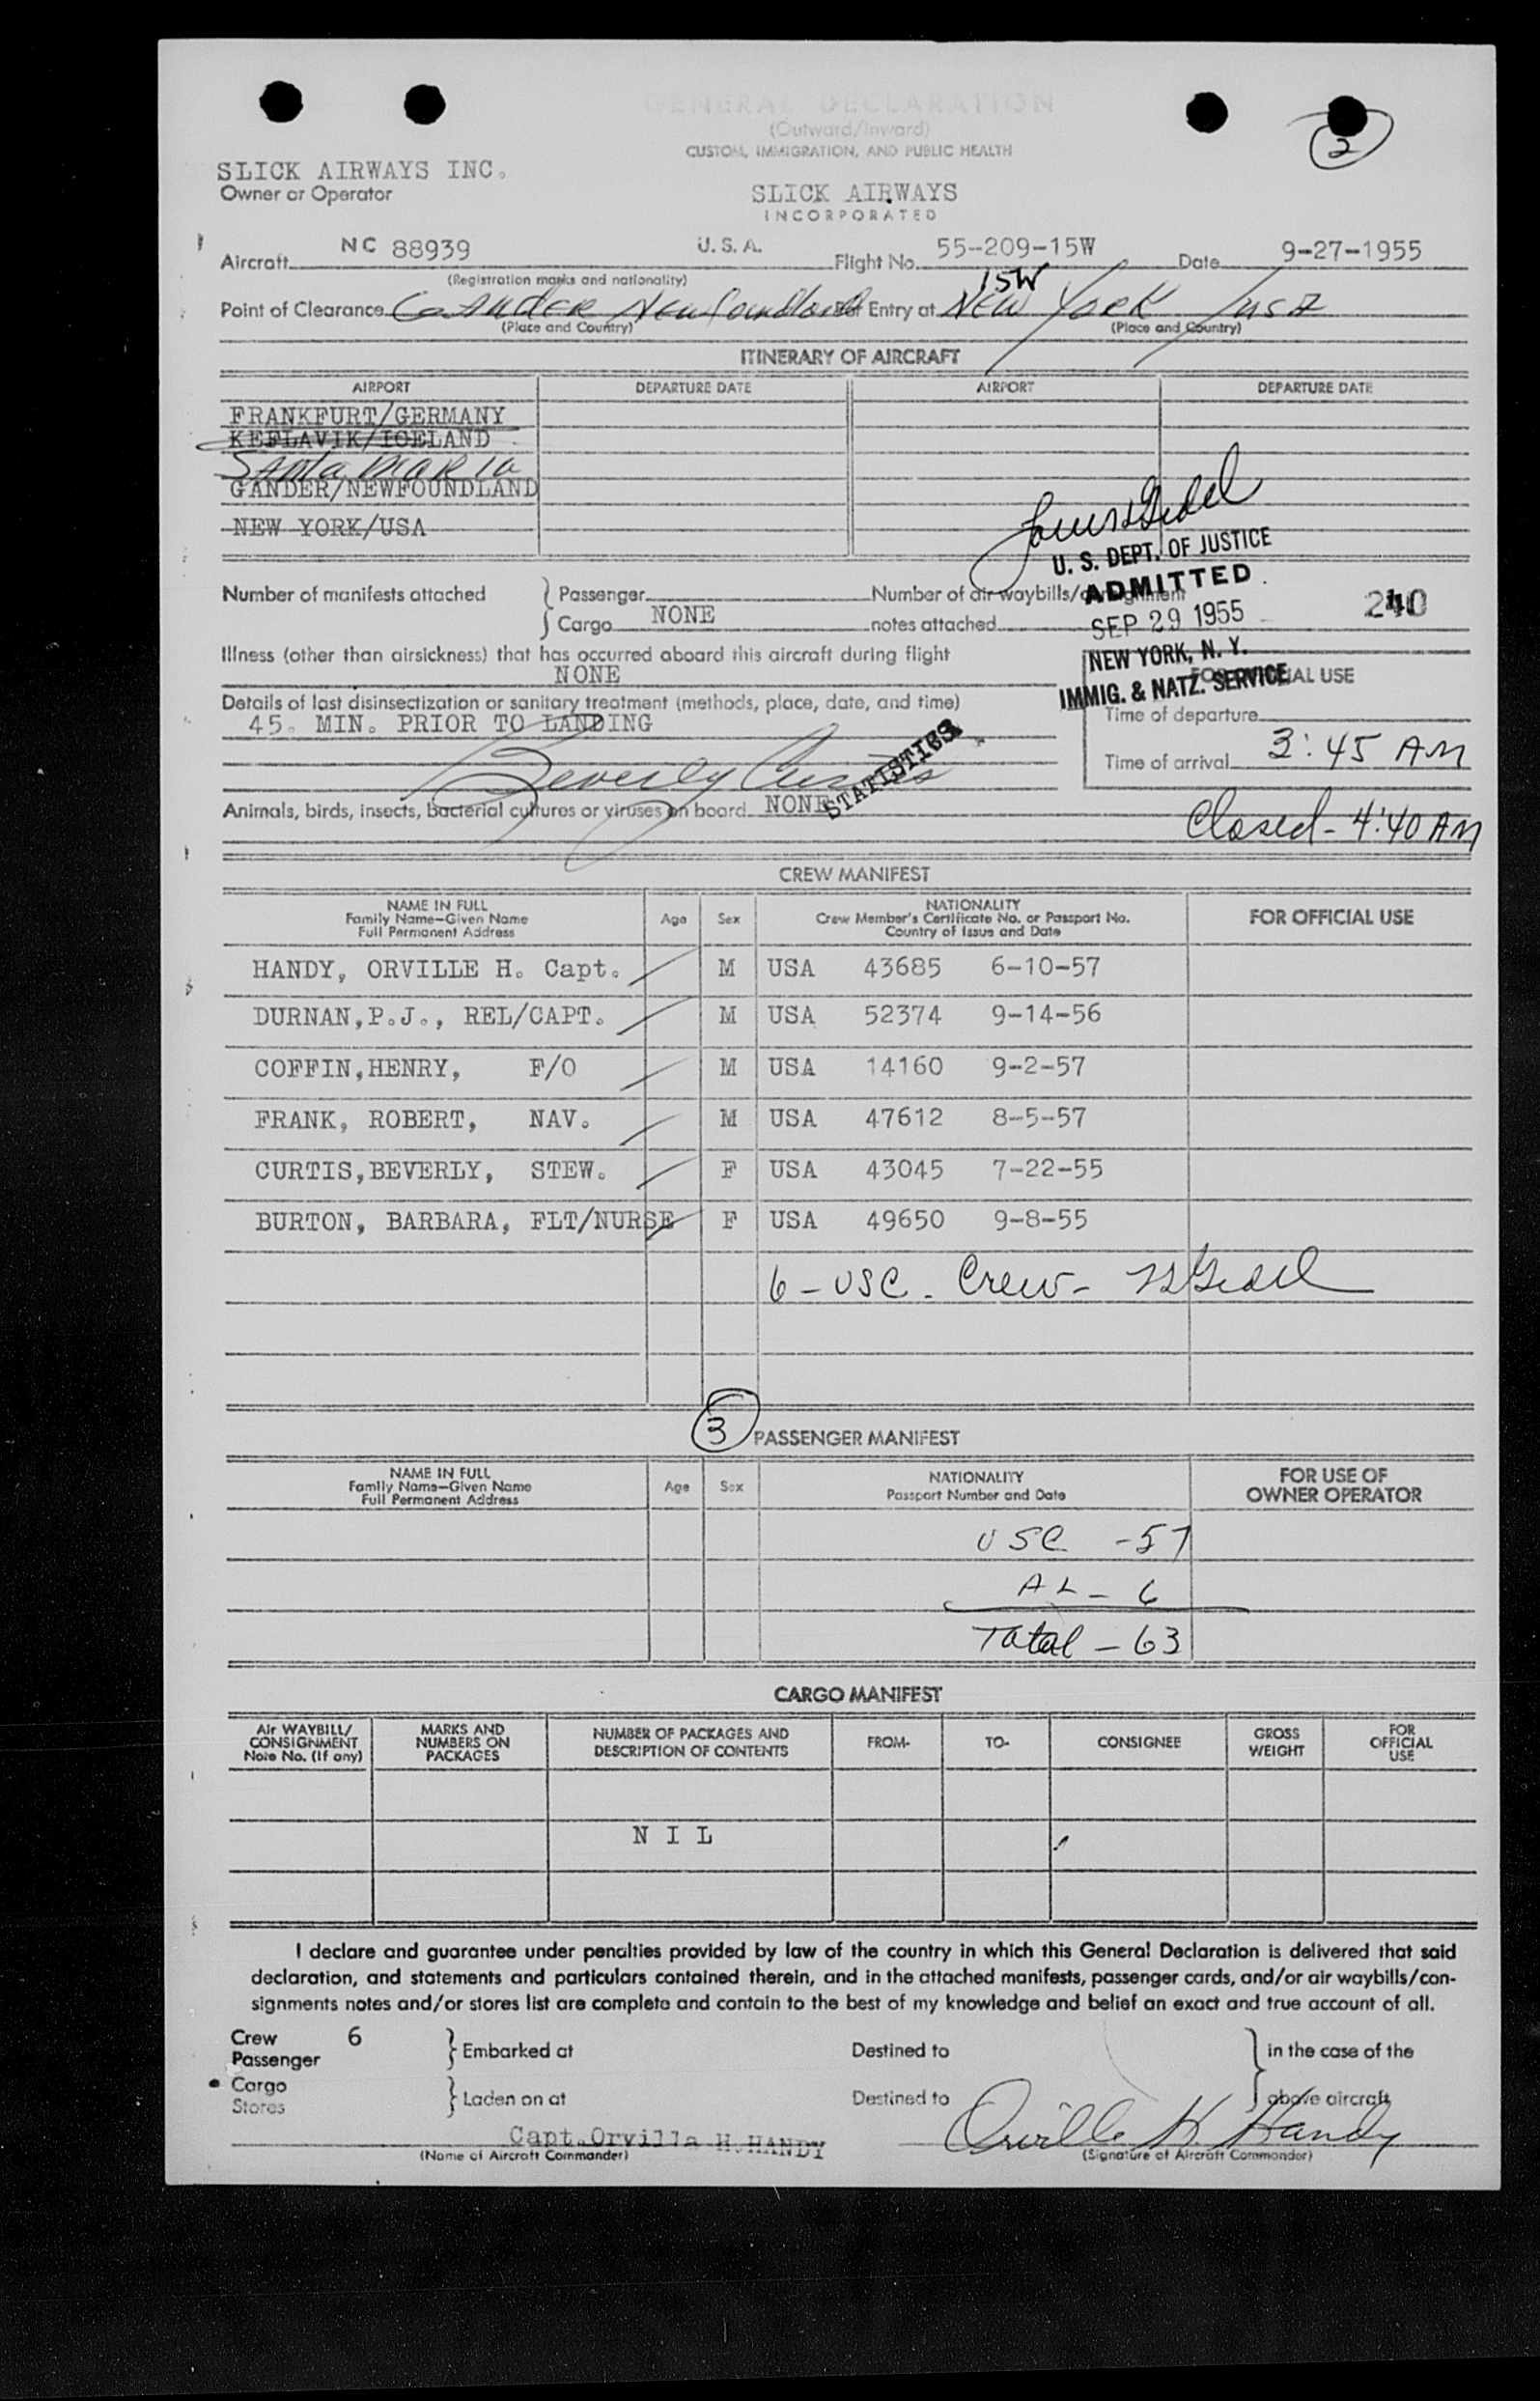 GENERAL DECLARATION
(Outward/Inward)
CUSTOM, IMMIGRATION, AND PUBLIC HEALTH
2
SLICK AIRWAYS INC.
Owner or Operator
SLICK AIRWAYS
INCORPORATED
Aircraft NC 88939 U.S.A. Flight No. 55-209-15W Date 9-27-1955
(Registration marks and nationality)
15W
Point of Clearance Gander Newfoundland For Entry at New York / USA
(Place and Country) (Place and Country)
ITINERARY OF AIRCRAFT
AIRPORT DEPARTURE DATE AIRPORT DEPARTURE DATE
FRANKFURT/GERMANY
KEFLAVIK/ICELAND
Santa Maria
GANDER/NEWFOUNDLAND
NEW YORK/USA
U. S. DEPT. OF JUSTICE
ADMITTED
SEP 29 1955
NEW YORK, N. Y.
IMMIG. & NATZ. SERVICE
Number of manifests attached } Passenger Number of air waybills/consignment
Cargo NONE notes attached 240
Illness (other than airsickness) that has occurred aboard this aircraft during flight
NONE
FOR OFFICIAL USE
Details of last disinsectization or sanitary treatment (methods, place, date, and time)
45. MIN. PRIOR TO LANDING
Time of departure
Beverly Curtis
STATISTICS
Time of arrival 3:45 AM
Animals, birds, insects, bacterial cultures or viruses on board NONE
Closed - 4:40 AM
CREW MANIFEST
NAME IN FULL
Family Name—Given Name
Full Permanent Address
Age Sex
NATIONALITY
Crew Member's Certificate No. or Passport No.
Country of Issue and Date
FOR OFFICIAL USE
HANDY, ORVILLE H. Capt. M USA 43685 6-10-57
DURNAN,P.J., REL/CAPT. M USA 52374 9-14-56
COFFIN,HENRY, F/O M USA 14160 9-2-57
FRANK, ROBERT, NAV. M USA 47612 8-5-57
CURTIS,BEVERLY, STEW. F USA 43045 7-22-55
BURTON, BARBARA, FLT/NURSE F USA 49650 9-8-55
6 - USC. Crew -
3 PASSENGER MANIFEST
NAME IN FULL
Family Name—Given Name
Full Permanent Address
Age Sex
NATIONALITY
Passport Number and Date
FOR USE OF
OWNER OPERATOR
USC - 57
AL - 6
Total - 63
CARGO MANIFEST
Air WAYBILL/
CONSIGNMENT
Note No. (If any)
MARKS AND
NUMBERS ON
PACKAGES
NUMBER OF PACKAGES AND
DESCRIPTION OF CONTENTS
FROM- TO- CONSIGNEE
GROSS
WEIGHT
FOR
OFFICIAL
USE
N I L
I declare and guarantee under penalties provided by law of the country in which this General Declaration is delivered that said
declaration, and statements and particulars contained therein, and in the attached manifests, passenger cards, and/or air waybills/con-
signments notes and/or stores list are complete and contain to the best of my knowledge and belief an exact and true account of all.
Crew 6
Passenger } Embarked at Destined to } in the case of the
Cargo
Stores } Laden on at Destined to above aircraft
Capt.Orvilla H.HANDY Orville H. Handy
(Name of Aircraft Commander) (Signature of Aircraft Commander)